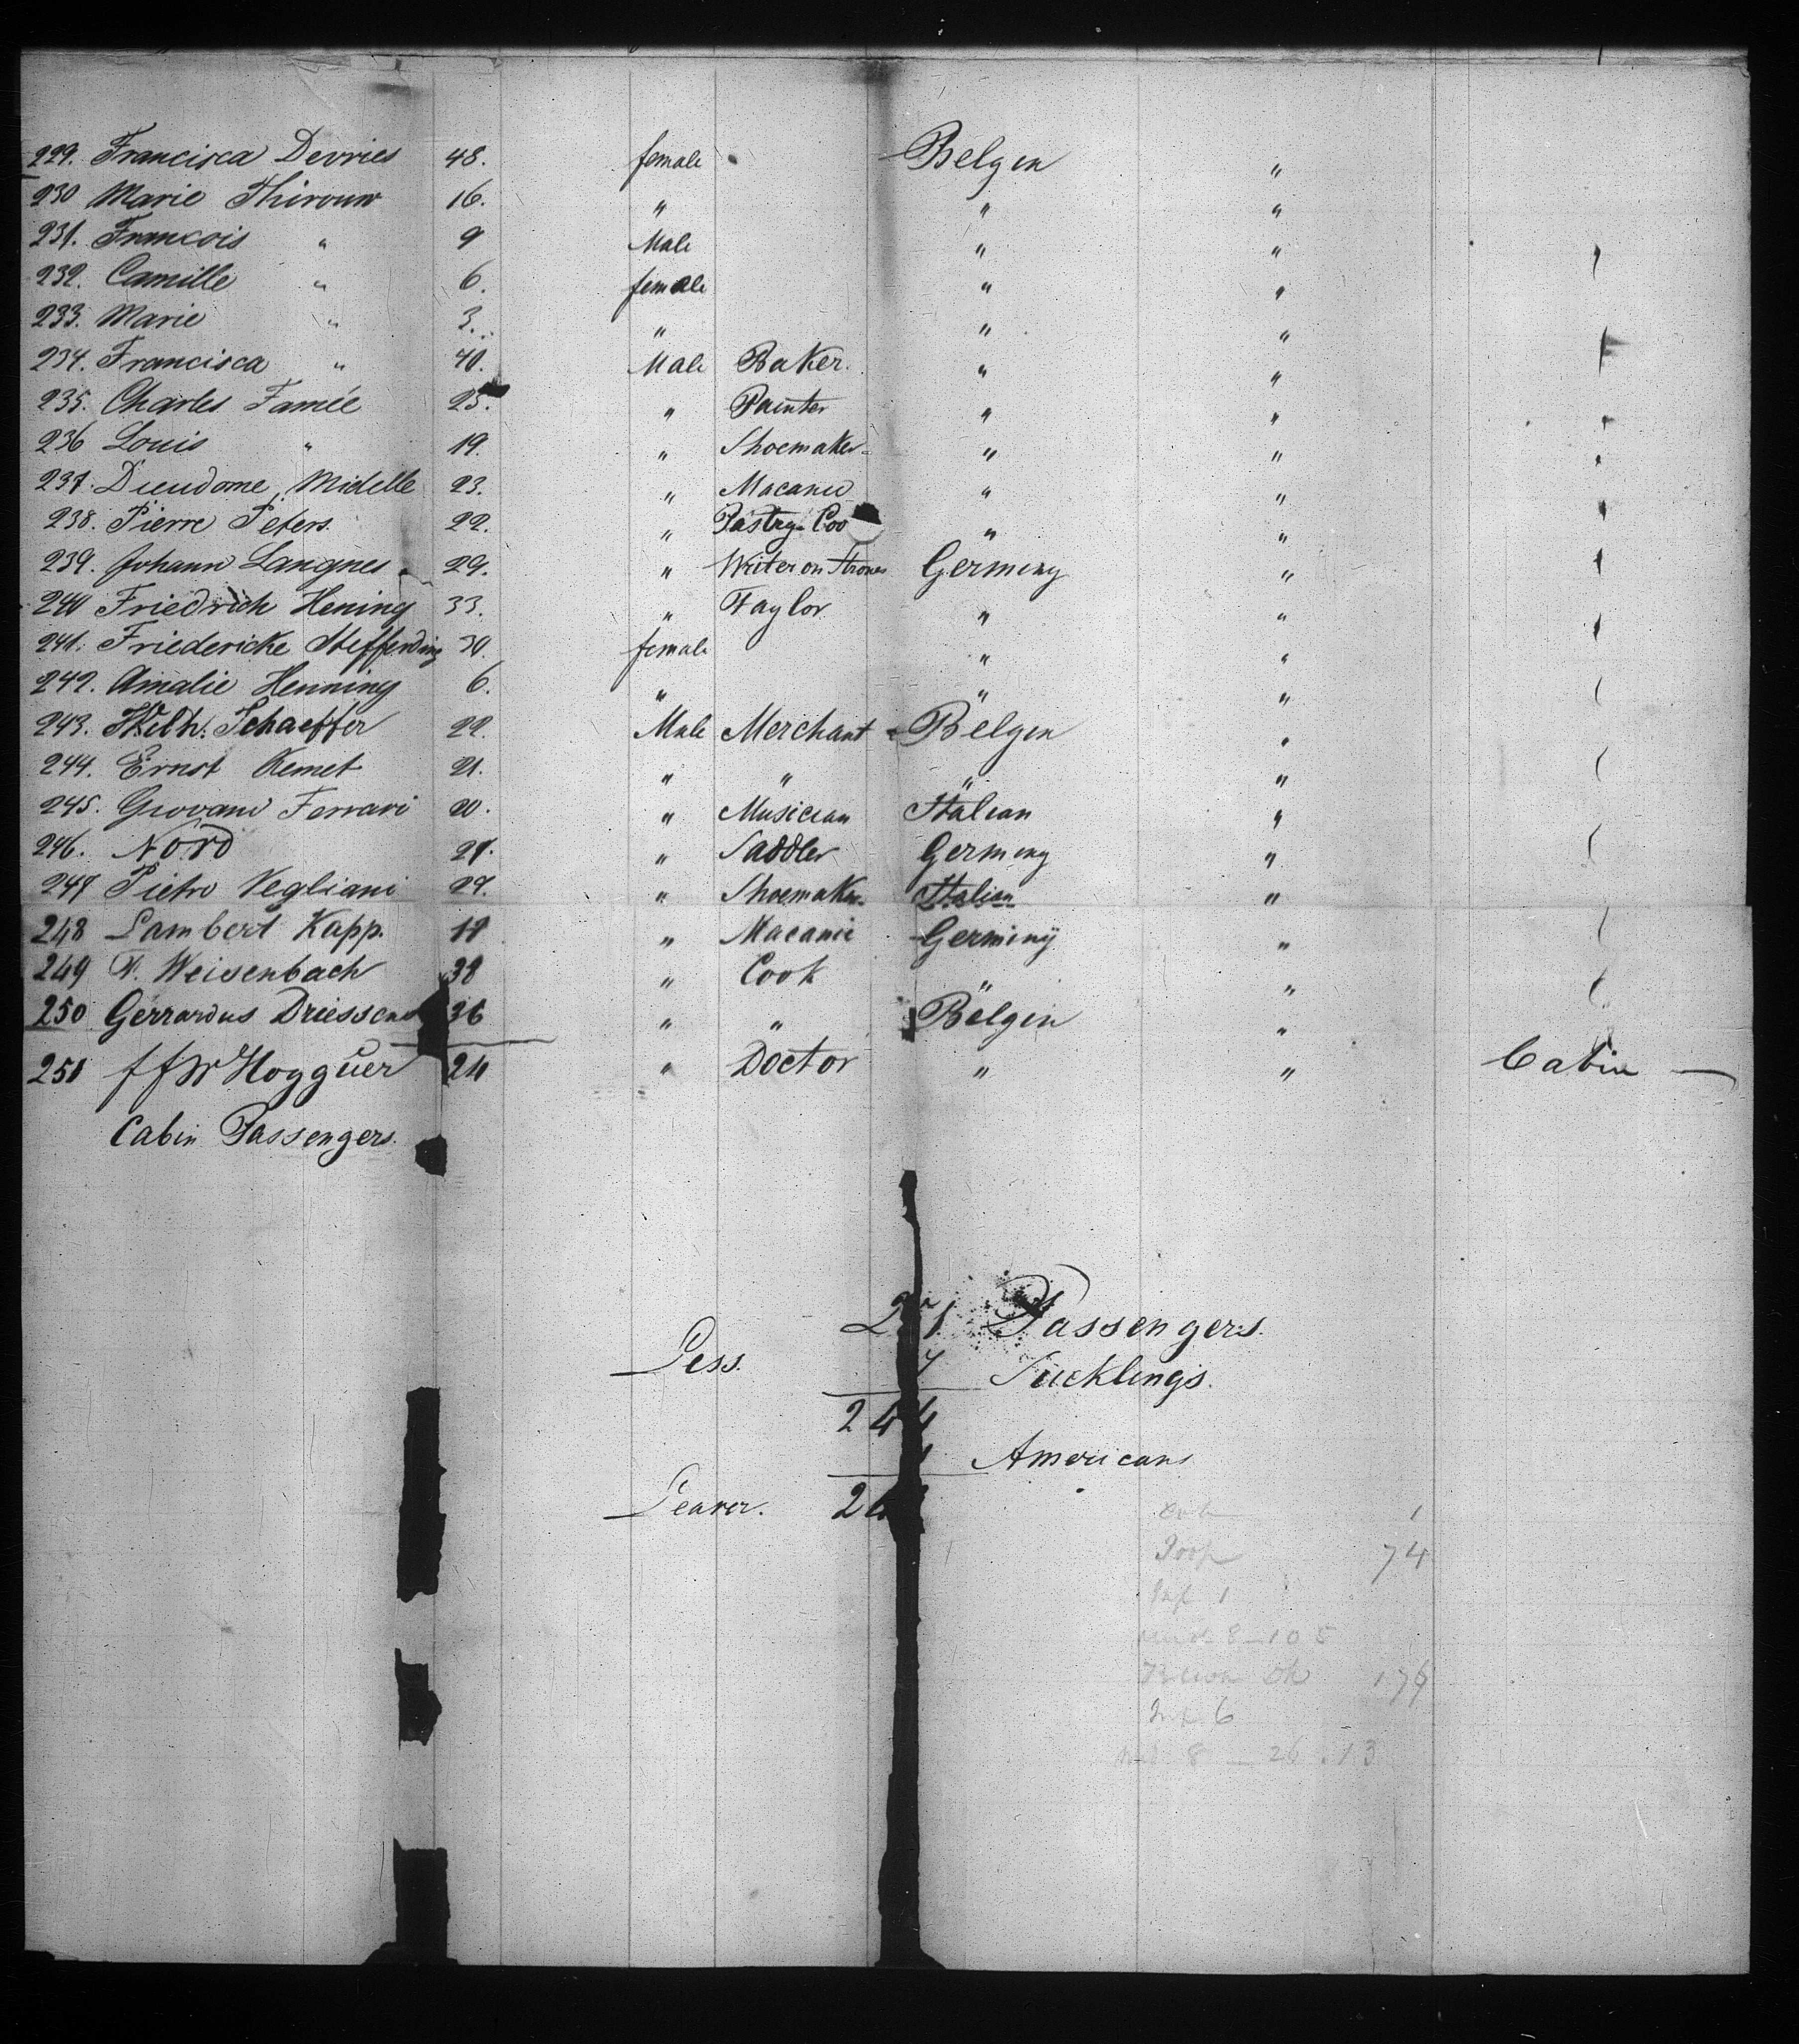 229. Francisca Devries 48. female Belgen "
230 Marie Thirouw 16. " " "
231. Francois " 9 Male " "
232. Camille " 6. female " "
233. Marie " 3. " " "
234. Francisca " 40. Male Baker. " "
235. Charles Famée 25. " Painter " "
236 Louis " 19. " Shoemaker " "
237. Dieudome Midelle 23. " Macanic " "
238. Pierre Peters. 22. " Pastry Coo " "
239. Johann Langnes 29. " Writer on Germeny "
240 Friedrich Hening 33. " Taylor " "
241. Friedericke Steffending 30. female " "
242. Amalie Henning 6. " " "
243. Wilh: Schaeffer 22. Male Merchant Belgen "
244. Ernst Kemet 21. " " " "
245. Giovani Ferrari 20. " Musician Italian "
246. Nord 21. " Saddler Germeny "
247 Pietro Vegliani 27. " Shoemaker Italian "
248 Lambert Kapp. " Macanic Germeny "
249 W. Weisenbach 38 " Cook " "
250 Gerrardus Driessens 36 " " Belgen "
251 Hogguer 24 " Doctor " " Cabin
Cabin Passengers.
2 1 Passengers.
Less. 7 Sucklings.
244
Americans
Leaver. 2
1
Poop 74
1
8 - 105
176
6
8 - 26 . 13